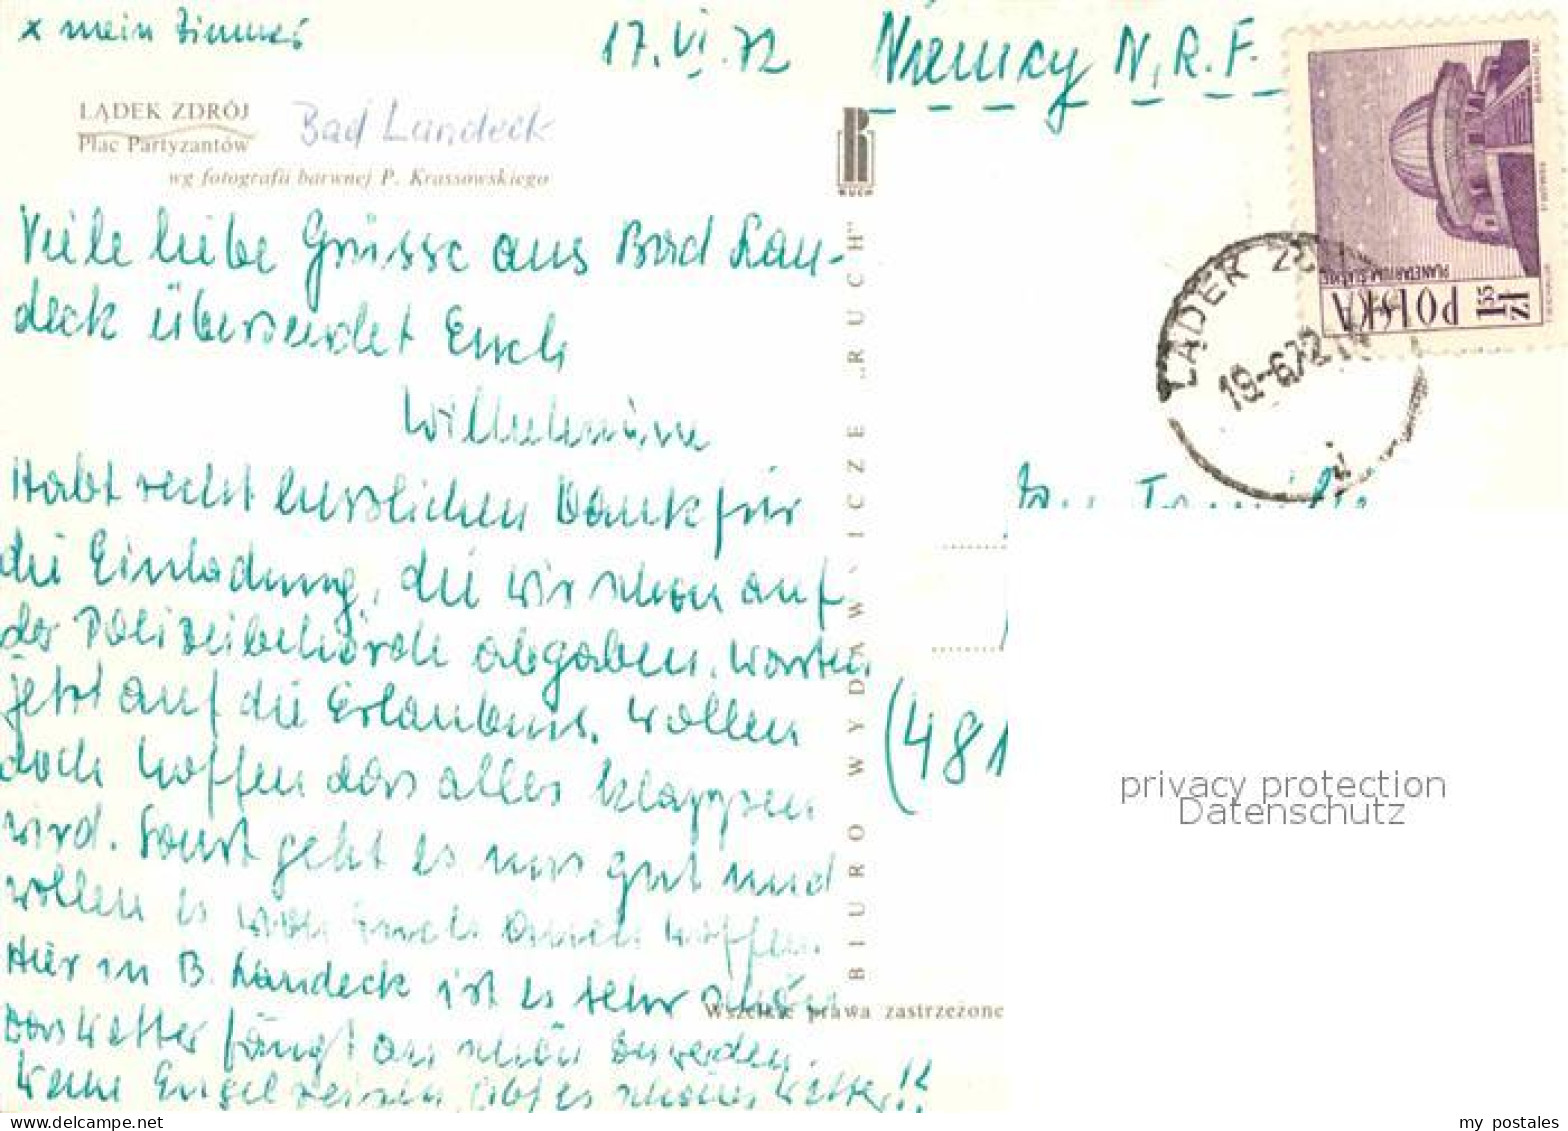 x mein Zimmer
17.VI.72
Niemcy N.R.F.
LĄDEK ZDRÓJ
Plac Partyzantów
Bad Landeck
wg fotografii barwnej P. Krassowskiego
RUCH
Viele liebe Grüsse aus Bad Lan-
deck übersendet Euch
Wilhelmine
Habt recht herzlichen Dank für
die Einladung, die wir schon auf
der Polizeibehörde abgaben. Warten
jetzt auf die Erlaubnis. Wollen
doch hoffen das alles klappen
wird. Sonst geht es uns gut und
wollen es von Euch auch hoffen.
Hier in B. Landeck ist es sehr schön
Das Wetter fängt an schön zu werden.
Wenn Engel reisen, gibt es schönes Wetter!!
BIURO WYDAWNICZE „RUCH"
Wszelkie prawa zastrzeżone
POLSKA
1 55 ZŁ
PLANETARIUM ŚLĄSKIE
LĄDEK ZD
19-6.72
(481
privacy protection
Datenschutz
delcampe.net
my_postales